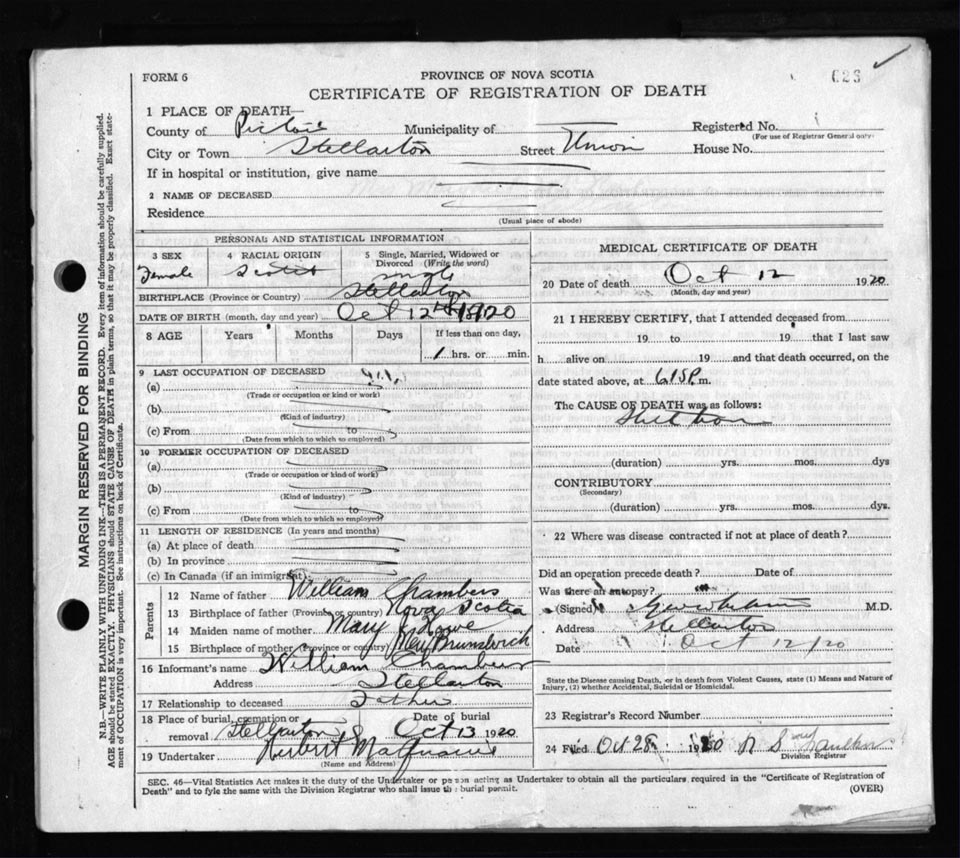 FORM 6
PROVINCE OF NOVA SCOTIA
023
CERTIFICATE OF REGISTRATION OF DEATH
1 PLACE OF DEATH—
County of Pictou Municipality of Registered No.
(For use of Registrar General only)
City or Town Stellarton Street Union House No.
If in hospital or institution, give name
2 NAME OF DECEASED
Residence
(Usual place of abode)
PERSONAL AND STATISTICAL INFORMATION
3 SEX 4 RACIAL ORIGIN 5 Single, Married, Widowed or Divorced (Write the word)
Female Scotch Single
BIRTHPLACE (Province or Country) Stellarton
DATE OF BIRTH (month, day and year) Oct 12th 1920
8 AGE Years Months Days If less than one day,
1 hrs. or min.
9 LAST OCCUPATION OF DECEASED
(a)
(Trade or occupation or kind or work)
(b)
(Kind of industry)
(c) From to
(Date from which to which so employed)
10 FORMER OCCUPATION OF DECEASED
(a)
(Trade or occupation or kind of work)
(b)
(Kind of industry)
(c) From to
(Date from which to which so employed)
11 LENGTH OF RESIDENCE (In years and months)
(a) At place of death
(b) In province
(c) In Canada (if an immigrant)
Parents
12 Name of father William Chambers
13 Birthplace of father (Province or country) Nova Scotia
14 Maiden name of mother Mary Howe
15 Birthplace of mother (Province or country) New Brunswick
16 Informant's name William Chambers
Address Stellarton
17 Relationship to deceased Father
18 Place of burial, cremation or Date of burial
removal Stellarton Oct 13 1920
19 Undertaker Herbert
(Name and Address)
MEDICAL CERTIFICATE OF DEATH
20 Date of death Oct 12 1920
(Month, day and year)
21 I HEREBY CERTIFY, that I attended deceased from
19 to 19 that I last saw
h alive on 19 and that death occurred, on the
date stated above, at 6.15P. m.
The CAUSE OF DEATH was as follows:
(duration) yrs. mos. dys
CONTRIBUTORY
(Secondary)
(duration) yrs. mos. dys.
22 Where was disease contracted if not at place of death?
Did an operation precede death? Date of
Was there an autopsy?
(Signed) M.D.
Address Stellarton
Date Oct 12/20
State the Disease causing Death, or in death from Violent Causes, state (1) Means and Nature of
Injury, (2) whether Accidental, Suicidal or Homicidal.
23 Registrar's Record Number
24 Filed Oct 28 1920
Division Registrar
SEC. 46—Vital Statistics Act makes it the duty of the Undertaker or person acting as Undertaker to obtain all the particulars required in the "Certificate of Registration of
Death" and to fyle the same with the Division Registrar who shall issue the burial permit.
(OVER)
MARGIN RESERVED FOR BINDING
N.B.—WRITE PLAINLY WITH UNFADING INK—THIS IS A PERMANENT RECORD. Every item of information should be carefully supplied.
AGE should be stated EXACTLY. PHYSICIANS should STATE CAUSE OF DEATH in plain terms, so that it may be properly classified. Exact state-
ment of OCCUPATION is very important. See instructions on back of Certificate.